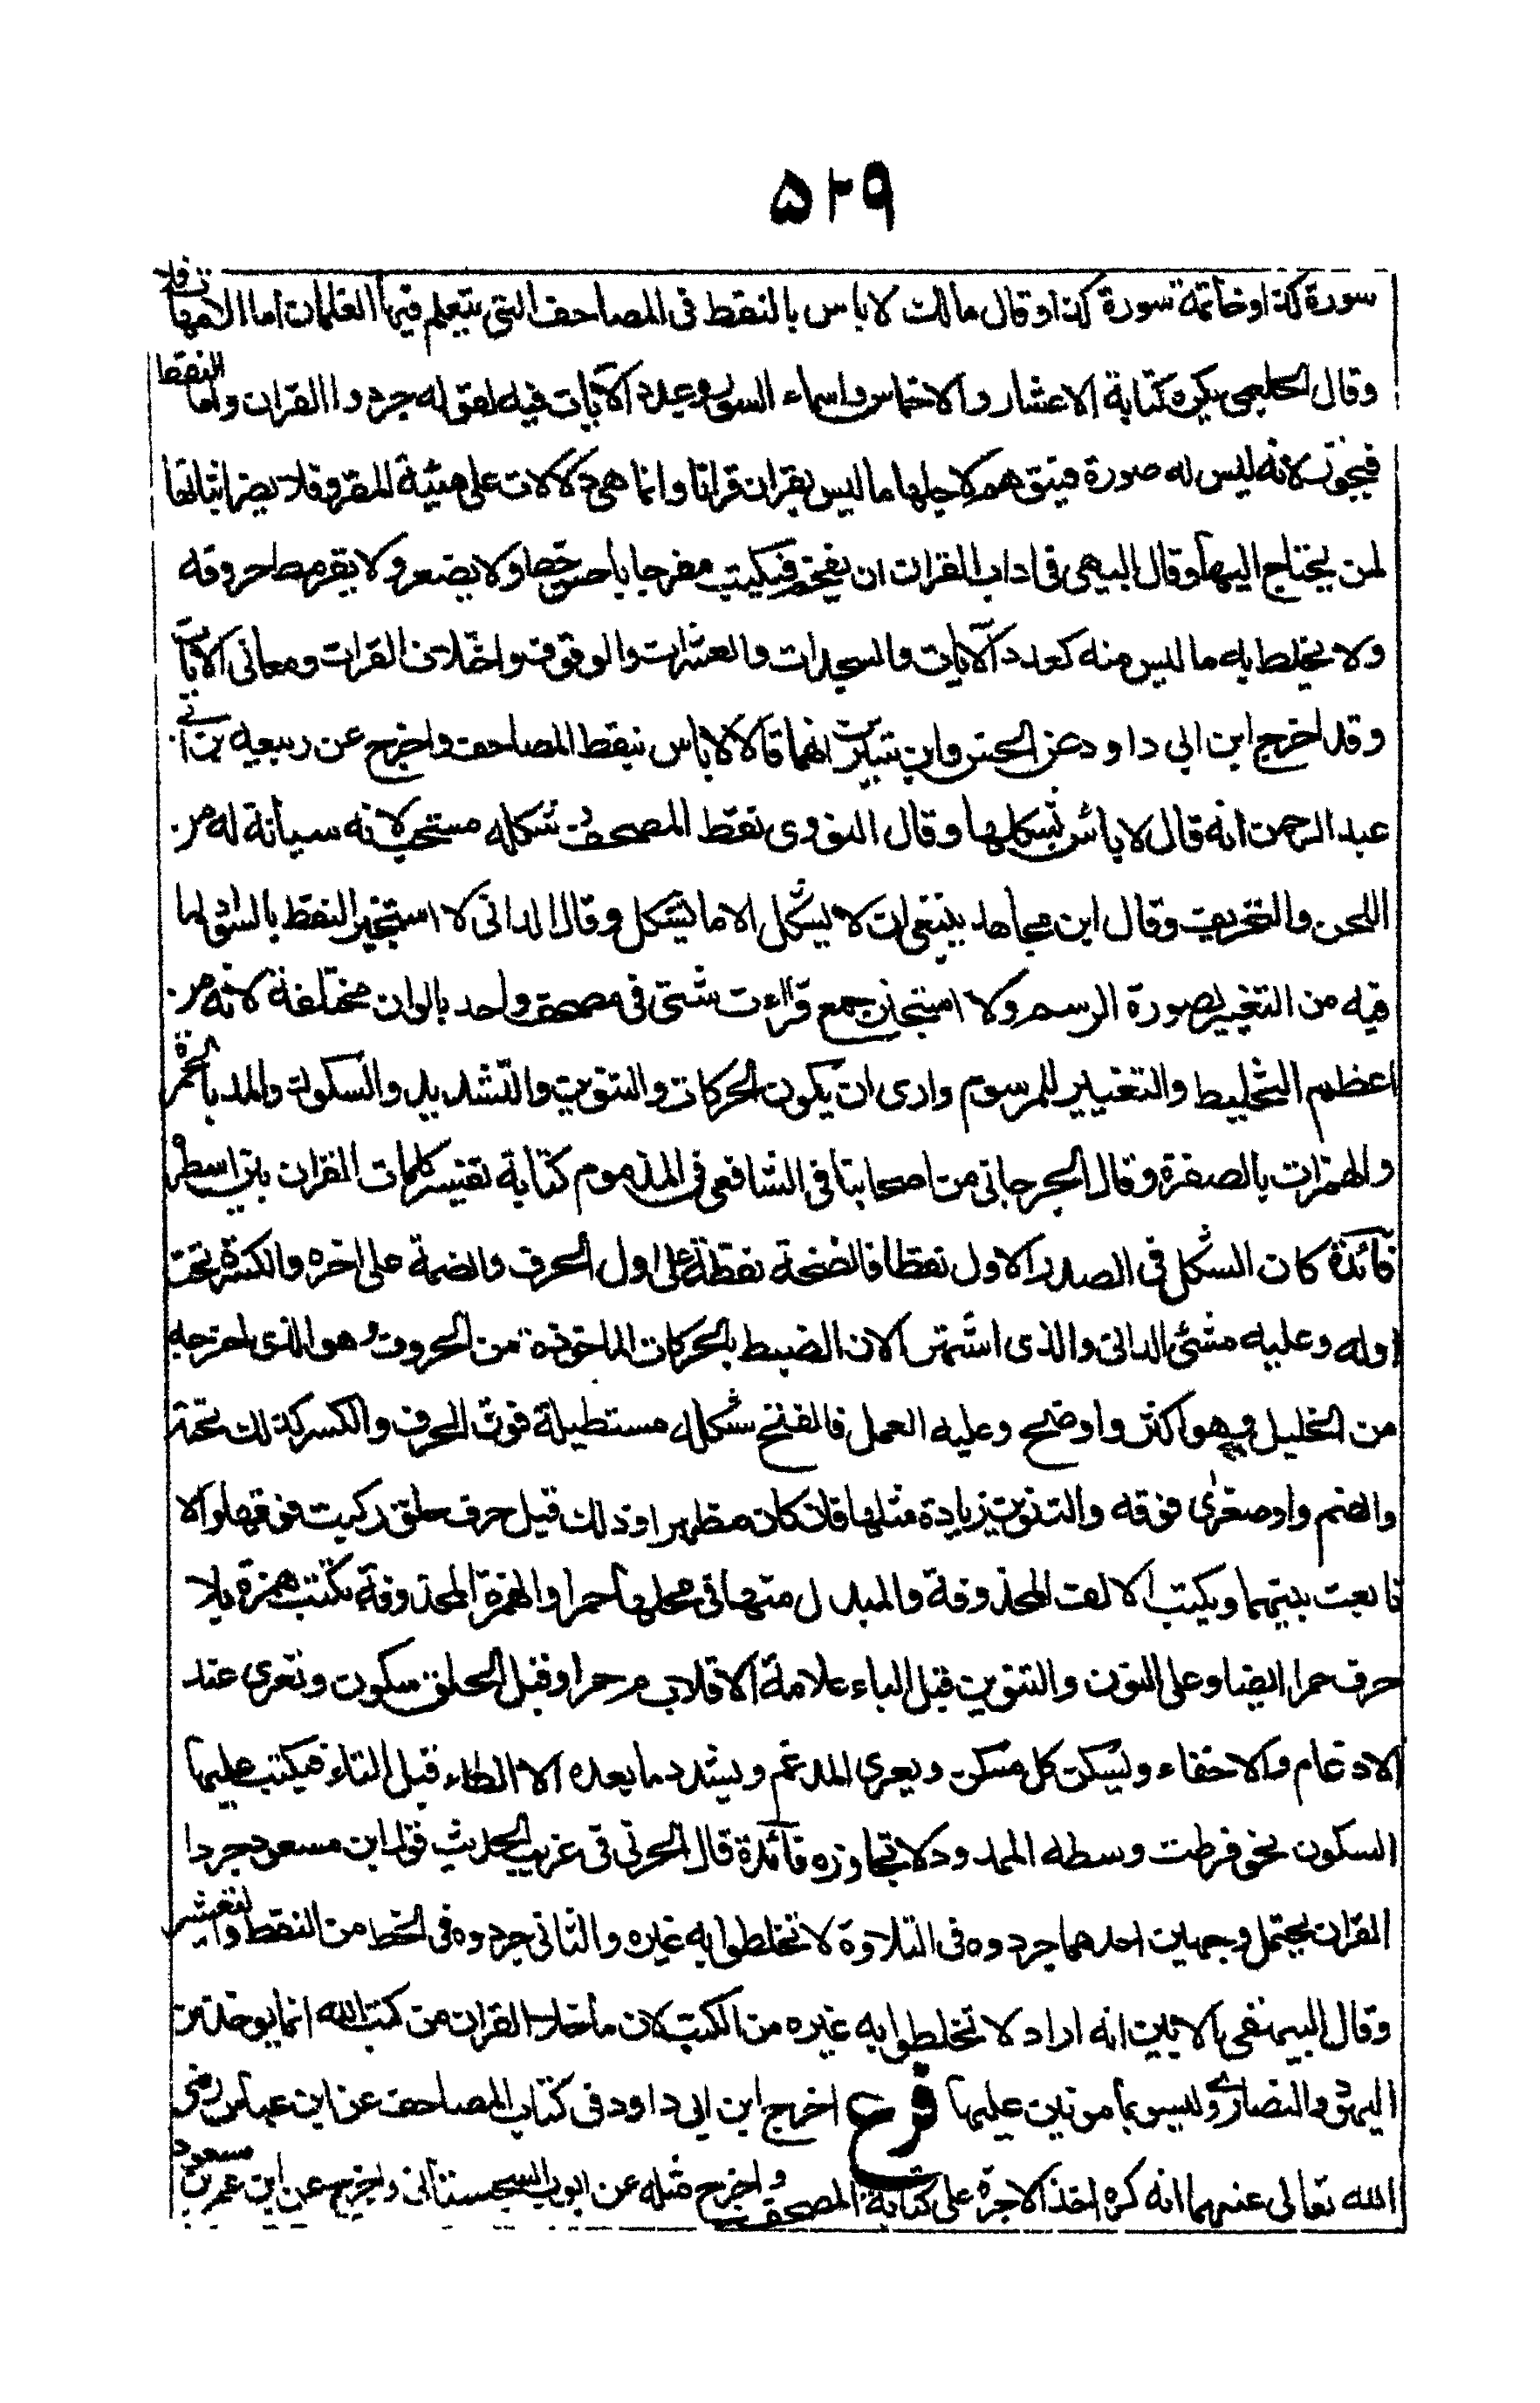 ٥٢٩
سورة كذا وخاتمة سورة كذا وقال مالك لا باس بالنقط فى المصاحف التى يتعلم فيها الغلمان اما الامهات فلا
وقال الحليمى يكره كتابة الاعشار والاخماس واسماء السور وعدد الآيات فيه لقوله جردوا القران واما النقط
فيجوز لانه ليس له صورة فيتوهم لاجلها ما ليس بقران قرانا وانما هى دلالات على هيئة المقرو فلا يضر اثباتها
لمن يحتاج اليها وقال البيهقى فى اداب القران ان يفخم فيكتب مفرجا باحسن خط ولا يصغر ولا يقرمط حروفه
ولا يخلط به ما ليس منه كعدد الآيات والسجدات والعشرات والوقوف واختلاف القرات ومعانى الايات
وقد اخرج ابن ابى داود عن الحسن وابن سيرين انهما قالا لا باس بنقط المصاحف واخرج عن ربيعه بن ابى
عبد الرحمن انه قال لا باس بشكلها وقال النووى نقط المصحف وشكله مستحب لانه صيانة له من
اللحن والتحريف وقال ابن مجاهد ينبغى ان لا يشكل الا ما يشكل وقال الدانى لا استجيز النقط بالسواد لما
فيه من التغيير لصورة الرسم ولا استجيز جمع قراءت شتى فى مصحف واحد بالوان مختلفة لانه من
اعظم التخليط والتغيير للمرسوم وارى ان يكون الحركات والتنوين والتشديد والسكون والمد بالحمرة
والهمزات بالصفرة وقال الجرجانى من اصحابنا فى الشافعى فى المذموم كتابة تفسير كلمات القران بين اسطره
فائدة كان الشكل فى الصدر الاول نقطا فالفتحة نقطة على اول الحرف والضمة على اخره والكسرة تحت
اوله وعليه مشى الدانى والذى اشتهر الان الضبط بالحركات الماخوذة من الحروف وهو الذى اخرجه
من الخليل وهو اكثر واوضح وعليه العمل فالفتح شكله مستطيلة فوق الحرف والكسر كذلك تحته
والضم واو صغرى فوقه والتنوين زيادة مثلها فان كان مظهرا وذلك قبل حرف حلق ركبت فوقها والا
تابعت بينهما ويكتب الالف المحذوفة والمبدل منها فى محلها حمرا والهمزة المحذوفة تكتب همزة بلا
حرف حمرا ايضا وعلى النون والتنوين قبل الباء علامة الاقلاب م حمرا وقبل الحلق سكون وتعرى عند
الادغام والاخفاء ويسكن كل مسكن ويعرى المدغم ويشدد ما بعده الا الطاء قبل التاء فيكتب عليها
السكون نحو فرطت وسطه الممدود لا تجاوزه فائدة قال الحربى فى غريب الحديث قول ابن مسعود جردا
القران يحتمل وجهين احدهما جردوه فى التلاوة لا تخلطوا به غيره والثانى جردوه فى الخط من النقط والتعشير
وقال البيهقى بالاثين انه اراد لا تخلطوا به غيره من الكتب لان ما خلا القران من كتب الله انما يوخذ من
اليهود والنصارى وليسو بمامونين عليها فرع اخرج ابن ابى داود فى كتاب المصاحف عن ابن عباس رضى
الله تعالى عنهما انه كره اخذ الاجرة على كتابة المصحف واخرج مثله عن ايوب السجستانى واخرج عن ابن عمر بن مسعود